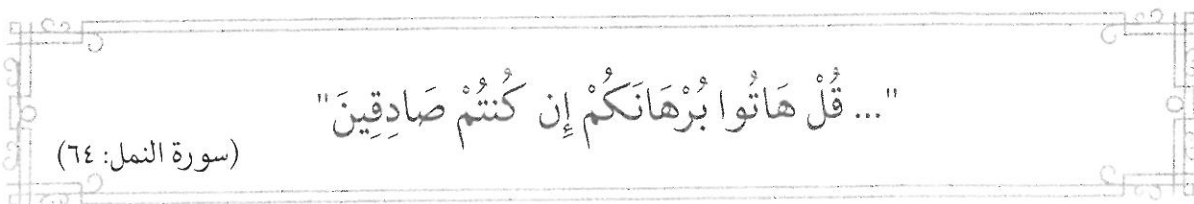 "... قُلْ هَاتُوا بُرْهَانَكُمْ إِن كُنتُمْ صَادِقِينَ"
(سورة النمل: ٦٤)